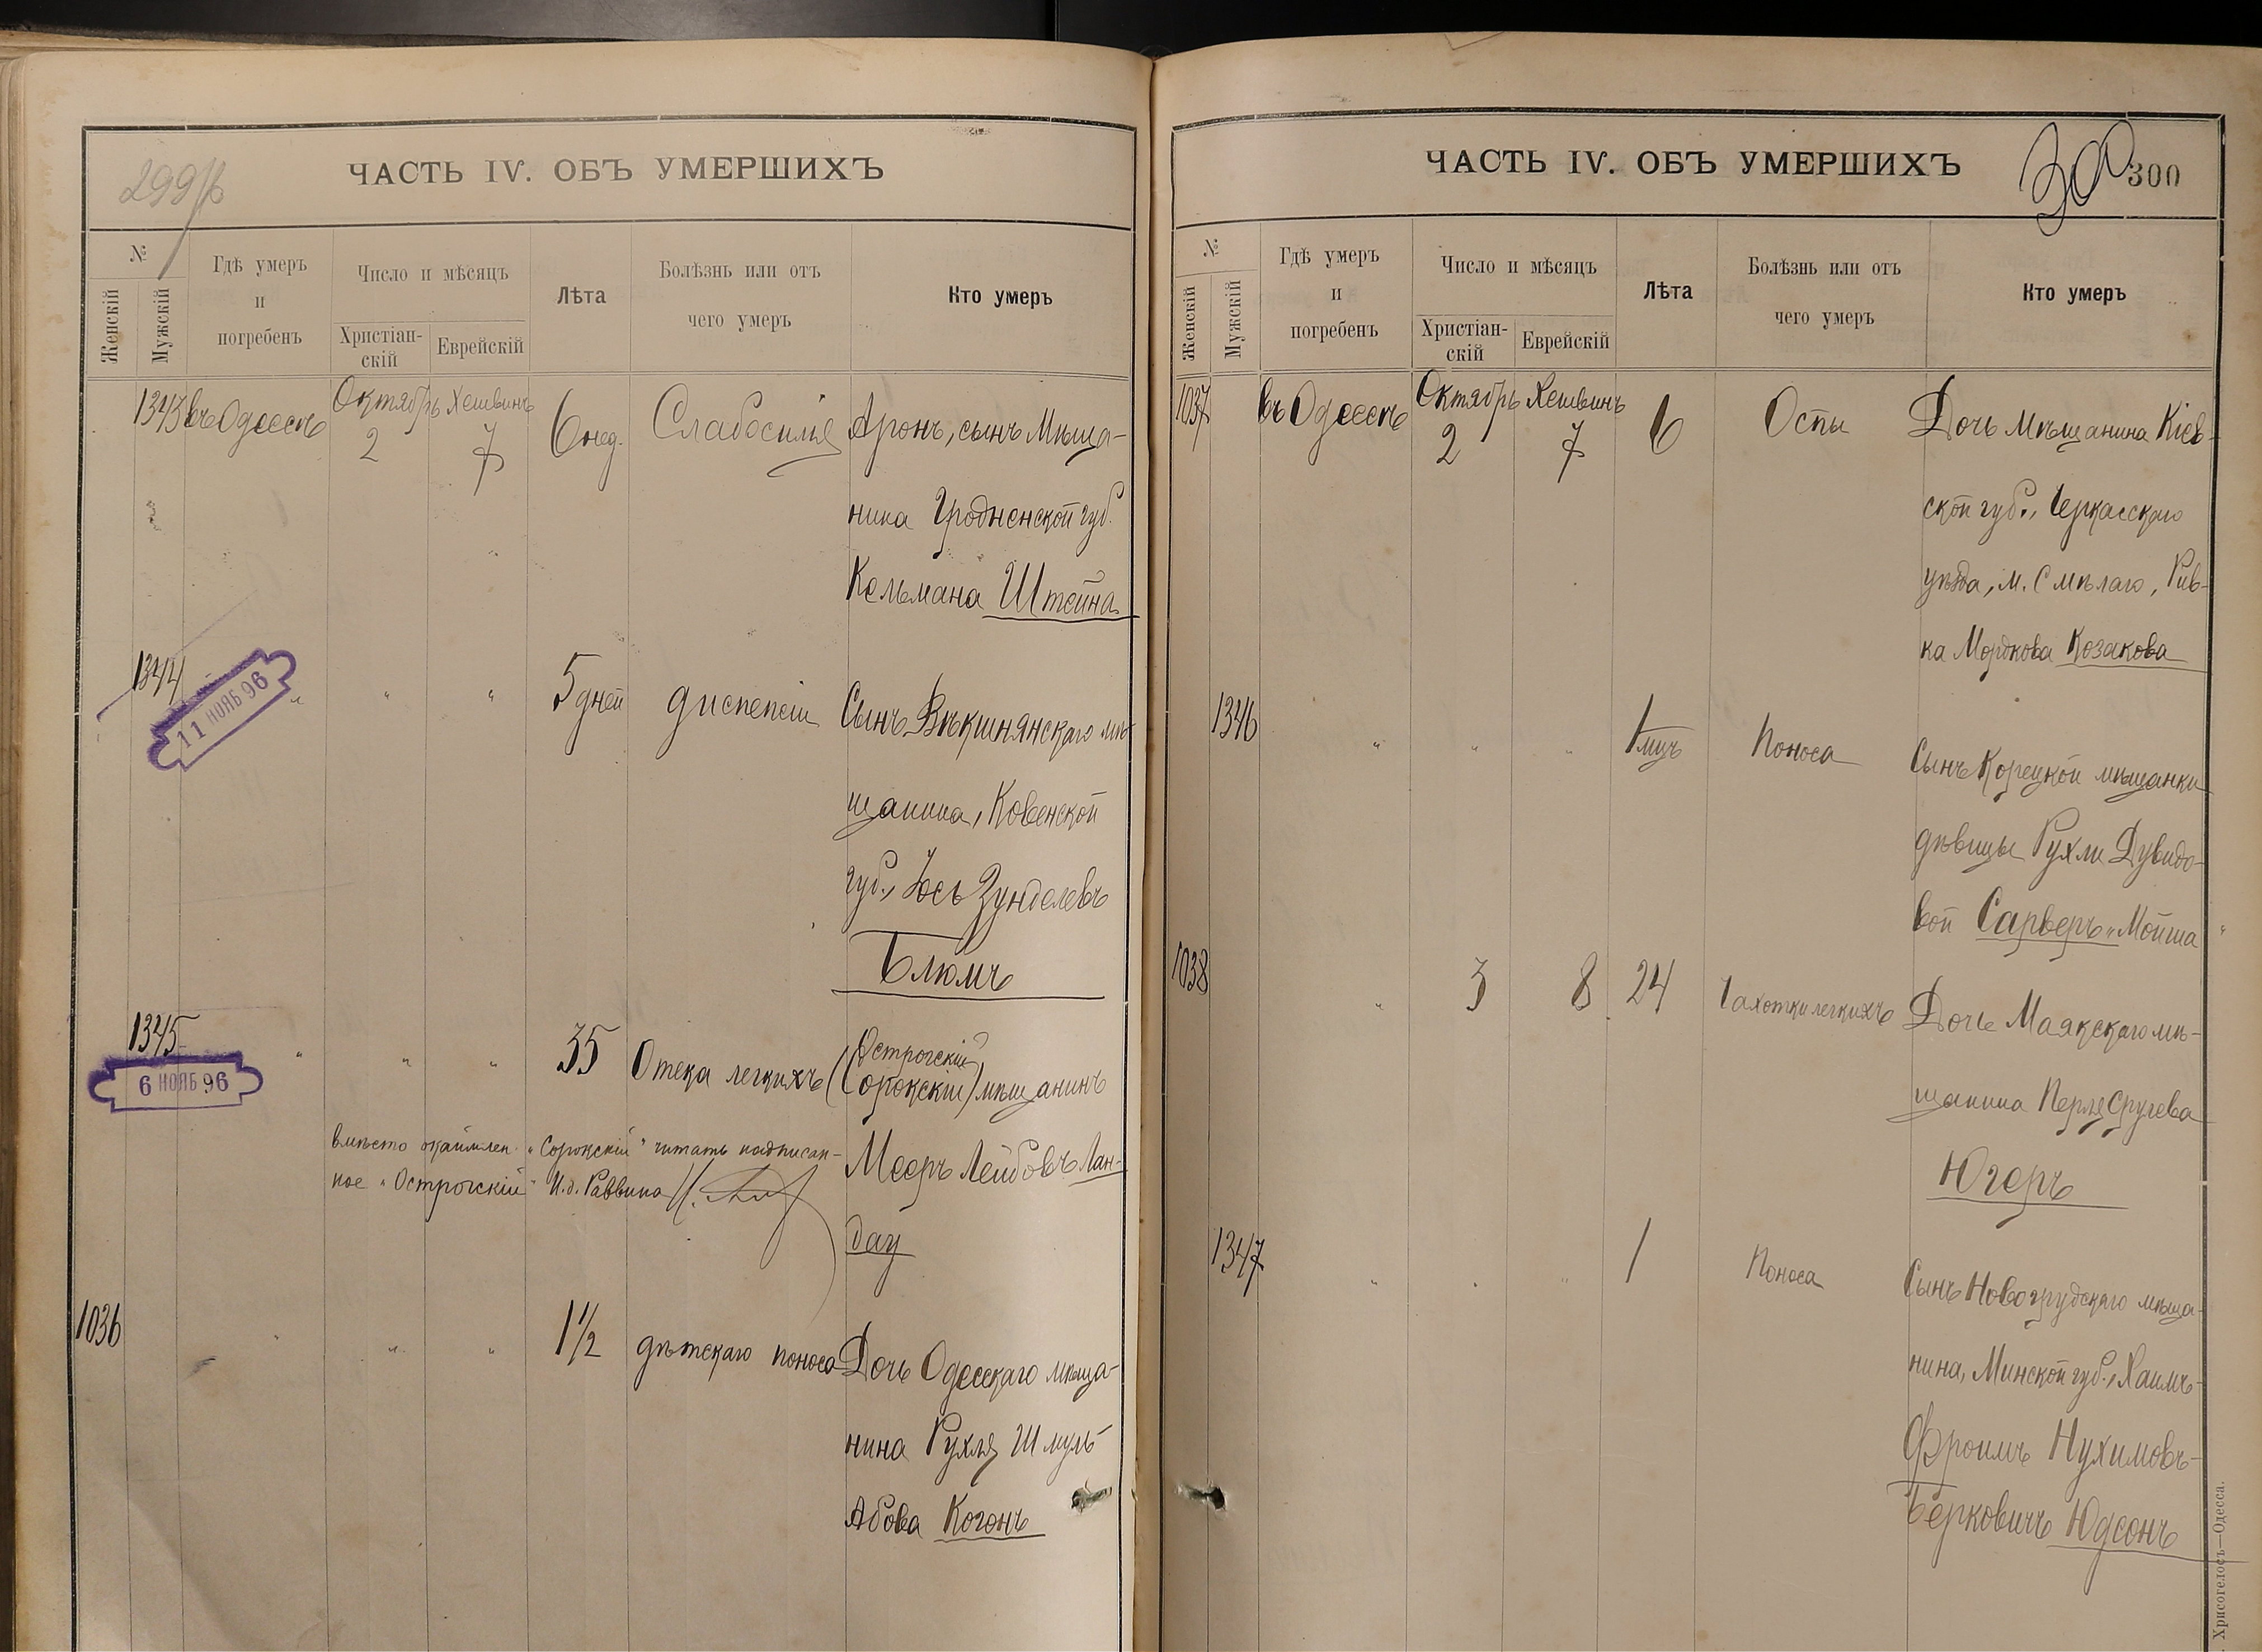 299/б
ЧАСТЬ IV. ОБЪ УМЕРШИХЪ
№
Женскій
Мужскій
Гдѣ умеръ
и
погребенъ
Число и мѣсяцъ
Христіан-
скій
Еврейскій
Лѣта
Болѣзнь или отъ
чего умеръ
Кто умеръ
1343 въ Одессѣ Октябрь 2 Хешвинъ 7 6 нед. Слабосилія Аронъ, сынъ Мѣща-
нина Гродненской губ.
Кельмана Штейна
1344 " " " 5 дней диспепсіи Сынъ Вѣкшнянскаго мѣ-
щанина, Ковенской
губ., Іось Зунделевъ
Блюмъ
11 НОЯБ 96
1345 " " " 35 Отека легкихъ Острогскій
(Сорокскій) мѣщанинъ
6 НОЯБ 96
вмѣсто окаймлен. "Сорокскій" читать надписан-
ное "Острогскій" И.д. Раввина
Мееръ Лейбовъ Лан-
дау
1036 " " " 1½ дѣтскаго поноса Дочь Одесскаго мѣща-
нина Рухля Шмуль
Абова Когонъ
ЧАСТЬ IV. ОБЪ УМЕРШИХЪ
300 300
№
Женскій
Мужскій
Гдѣ умеръ
и
погребенъ
Число и мѣсяцъ
Христіан-
скій
Еврейскій
Лѣта
Болѣзнь или отъ
чего умеръ
Кто умеръ
1037 въ Одессѣ Октябрь 2 Хешвинъ 7 6 Оспы Дочь мѣщанина Кіев-
ской губ., Черкасскаго
уѣзда, м. Смѣлаго, Рив-
ка Мордкова Козакова
1346 " " " 1 мцъ Поноса Сынъ Корецкой мѣщанки
дѣвицы Рухли Дувидо-
вой Сарверъ "Мойша"
1038 " 3 8 24 Чахотки легкихъ Дочь Маякскаго мѣ-
щанина Перля Сруева
Югеръ
1347 " " " 1 Поноса Сынъ Новогрудскаго мѣща-
нина, Минской губ., Хаимъ-
Фроимъ Нухимовъ-
Берковичъ Юдсонъ
Хрисогелосъ—Одесса.